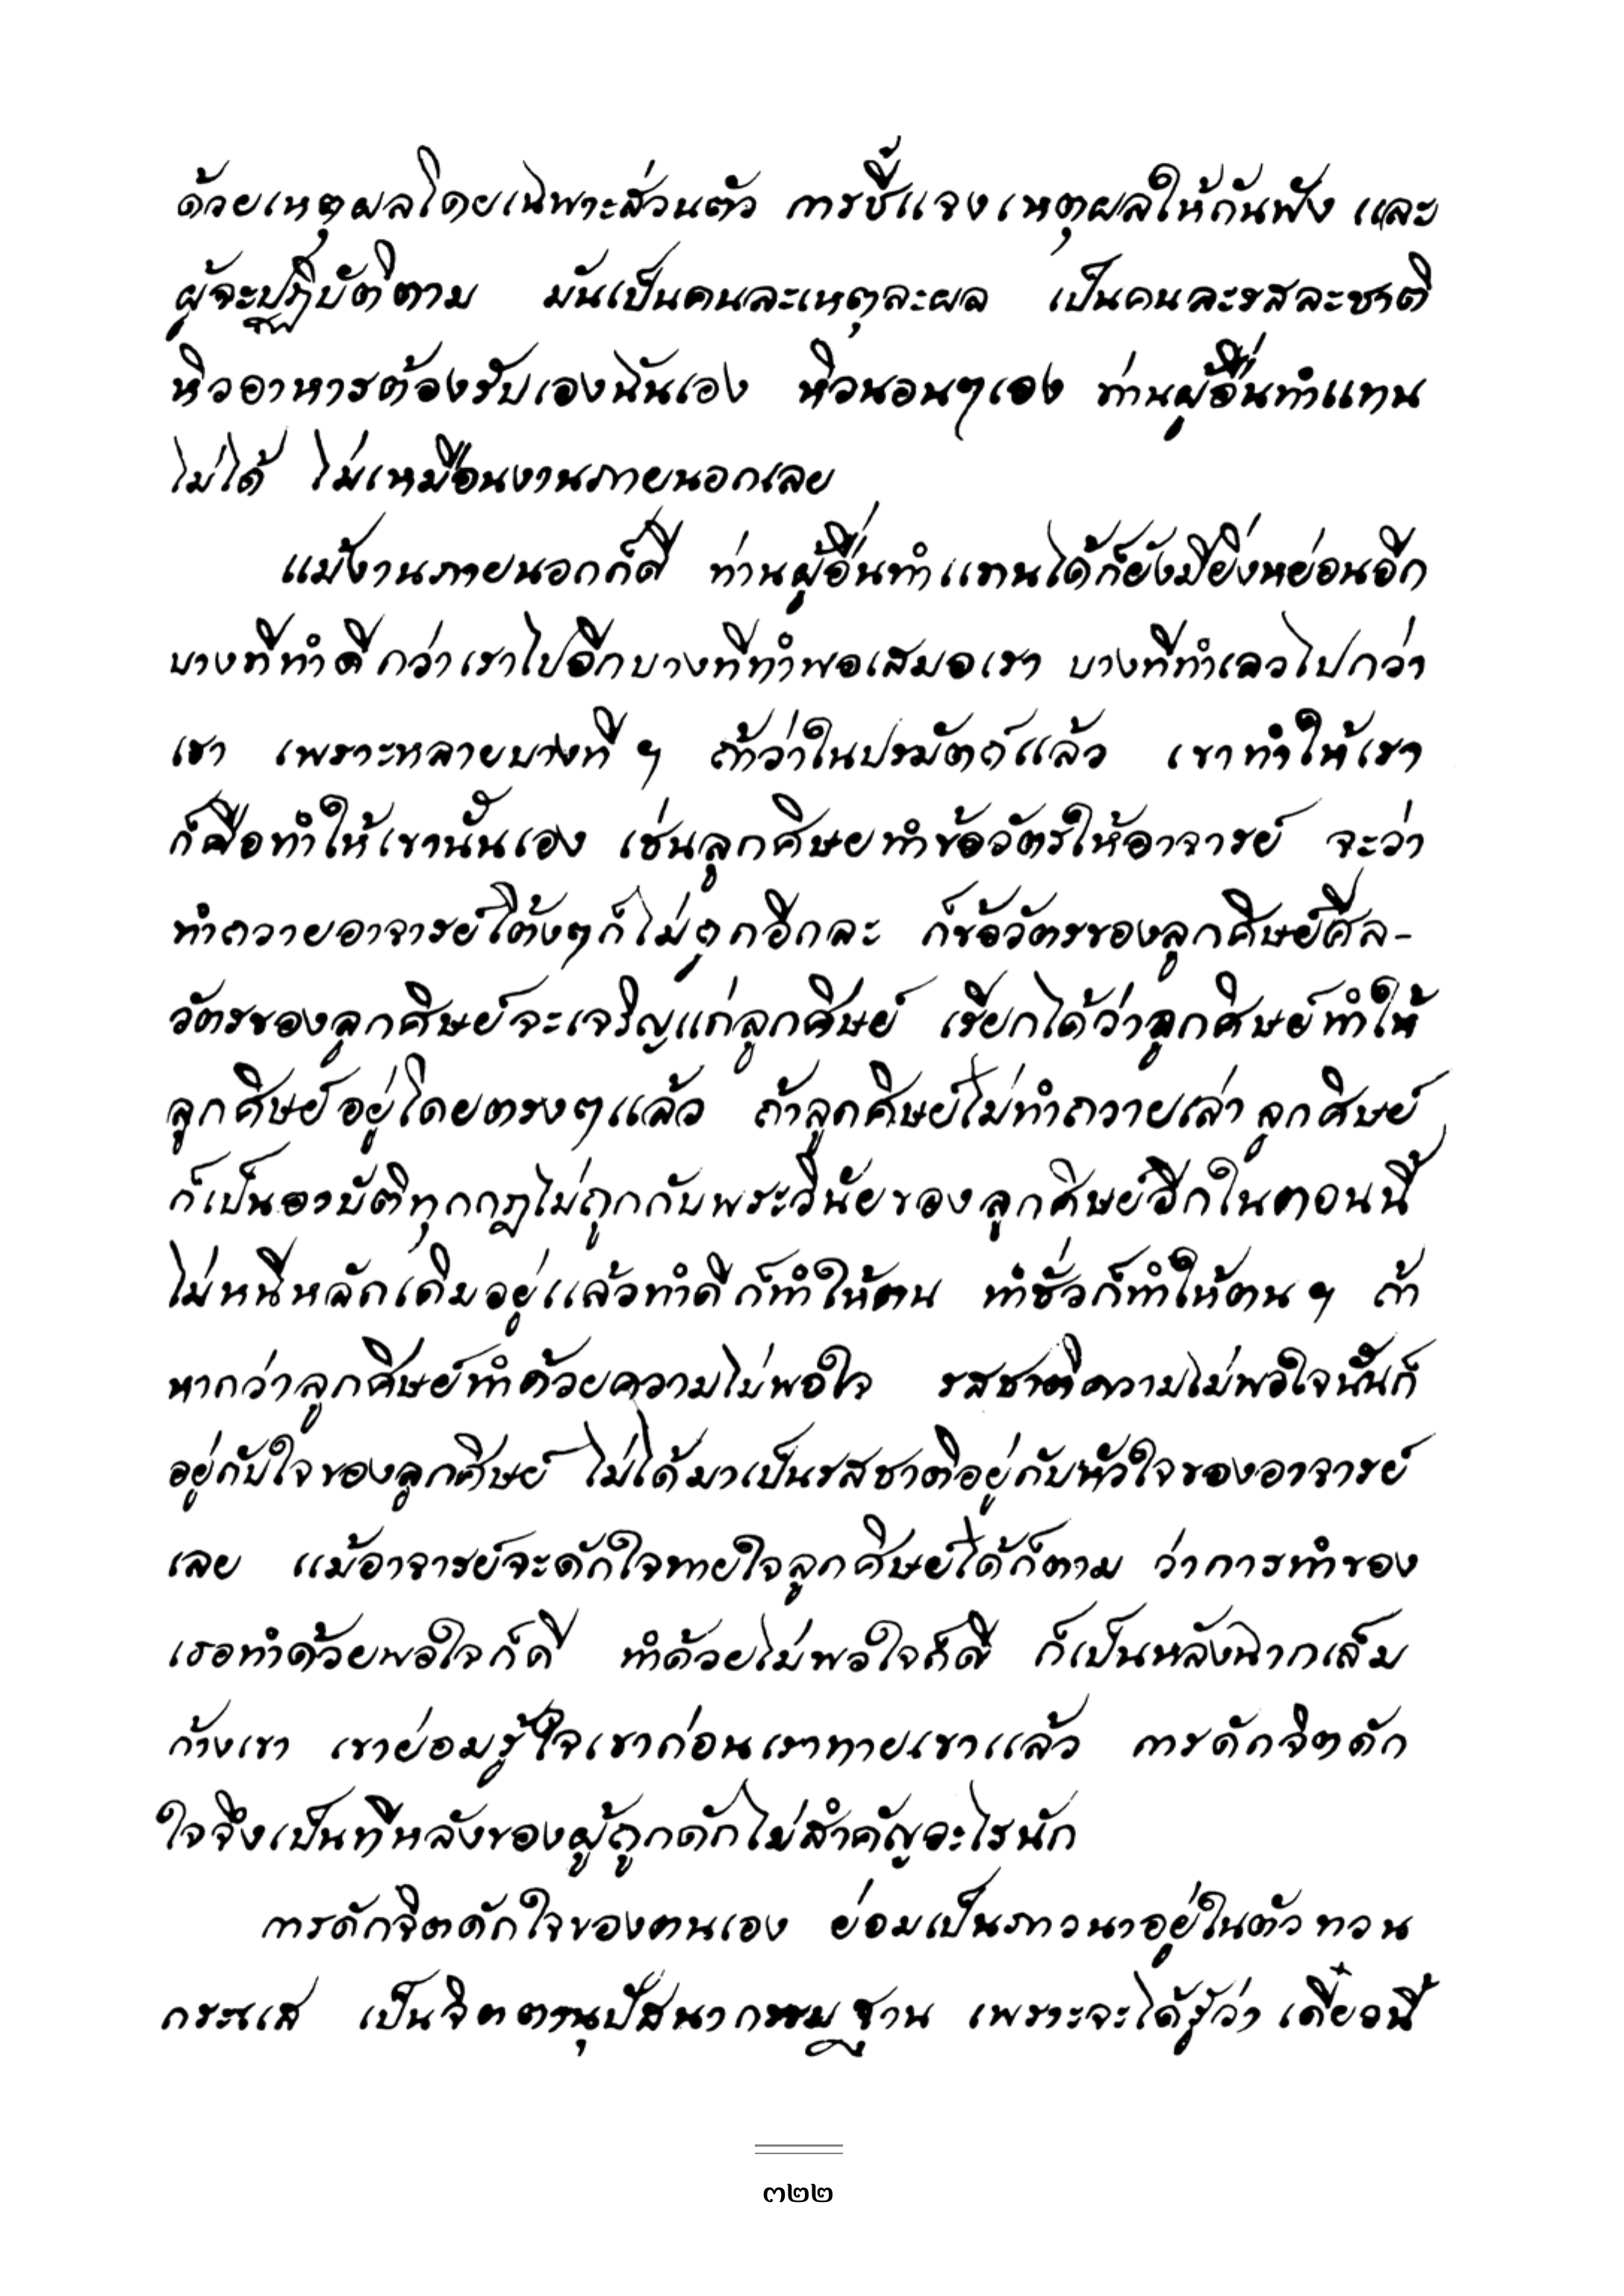 ด้วยเหตุผลโดยเฉพาะส่วนตัว การชี้แจงเหตุผลให้กันฟัง และ
ผู้จะปฏิบัติตาม มันเป็นคนละเหตุละผล เป็นคนละรสละชาติ
หิวอาหารต้องรับเองฉันเอง หิวนอนๆเอง ท่านผู้อื่นทำแทน
ไม่ได้ ไม่เหมือนงานภายนอกเลย
แม้งานภายนอกก็ดี ท่านผู้อื่นทำแทนได้ก็ยังมียิ่งหย่อนอีก
บางทีทำดีกว่าเราไปอีกบางทีทำพอเสมอเรา บางทีทำเลวไปกว่า
เรา เพราะหลายบางที ๆ ถ้าว่าในปรมัตถ์แล้ว เขาทำให้เรา
ก็คือทำให้เขานั้นเอง เช่นลูกศิษยทำข้อวัตรให้อาจารย์ จะว่า
ทำถวายอาจารย์โต้งๆก็ไม่ถูกอีกละ ก็ข้อวัตรของลูกศิษย์ศีล-
วัตรของลูกศิษย์จะเจริญแก่ลูกศิษย์ เรียกได้ว่าลูกศิษย์ทำให้
ลูกศิษย์อยู่โดยตรงๆแล้ว ถ้าลูกศิษย์ไม่ทำถวายเล่า ลูกศิษย์
ก็เป็นอาบัติทุกกฏไม่ถูกกับพระวินัยของลูกศิษย์อีกในตอนนี้
ไม่หนีหลักเดิมอยู่แล้วทำดีก็ทำให้ตน ทำชั่วก็ทำให้ตน ๆ ถ้า
หากว่าลูกศิษย์ทำด้วยความไม่พอใจ รสชาติความไม่พอใจนั้นก็
อยู่กับใจของลูกศิษย์ ไม่ได้มาเป็นรสชาติอยู่กับหัวใจของอาจารย์
เลย แม้อาจารย์จะดักใจทายใจลูกศิษย์ได้ก็ตาม ว่าการทำของ
เธอทำด้วยพอใจก็ดี ทำด้วยไม่พอใจก็ดี ก็เป็นหลังฉากเล็ม
ก้างเขา เขาย่อมรู้ใจเขาก่อนเราทายเขาแล้ว การดักจิตดัก
ใจจึงเป็นทีหลังของผู้ถูกดักไม่สำคัญอะไรนัก
การดักจิตดักใจของตนเอง ย่อมเป็นภาวนาอยู่ในตัว ทวน
กระแส เป็นจิตตานุปัสนากรรมฐาน เพราะจะได้รู้ว่า เดี๋ยวนี้
๓๒๒